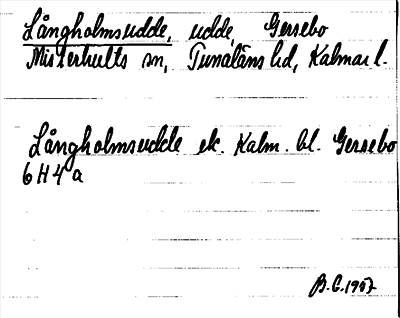 Långholmsudde, udde, Gersebo
Misterhults sn, Tunaläns hd, Kalmar l.
Långholmsudde ek. Kalm. bl. Gersebo
6 H 4 a
B.E. 1957